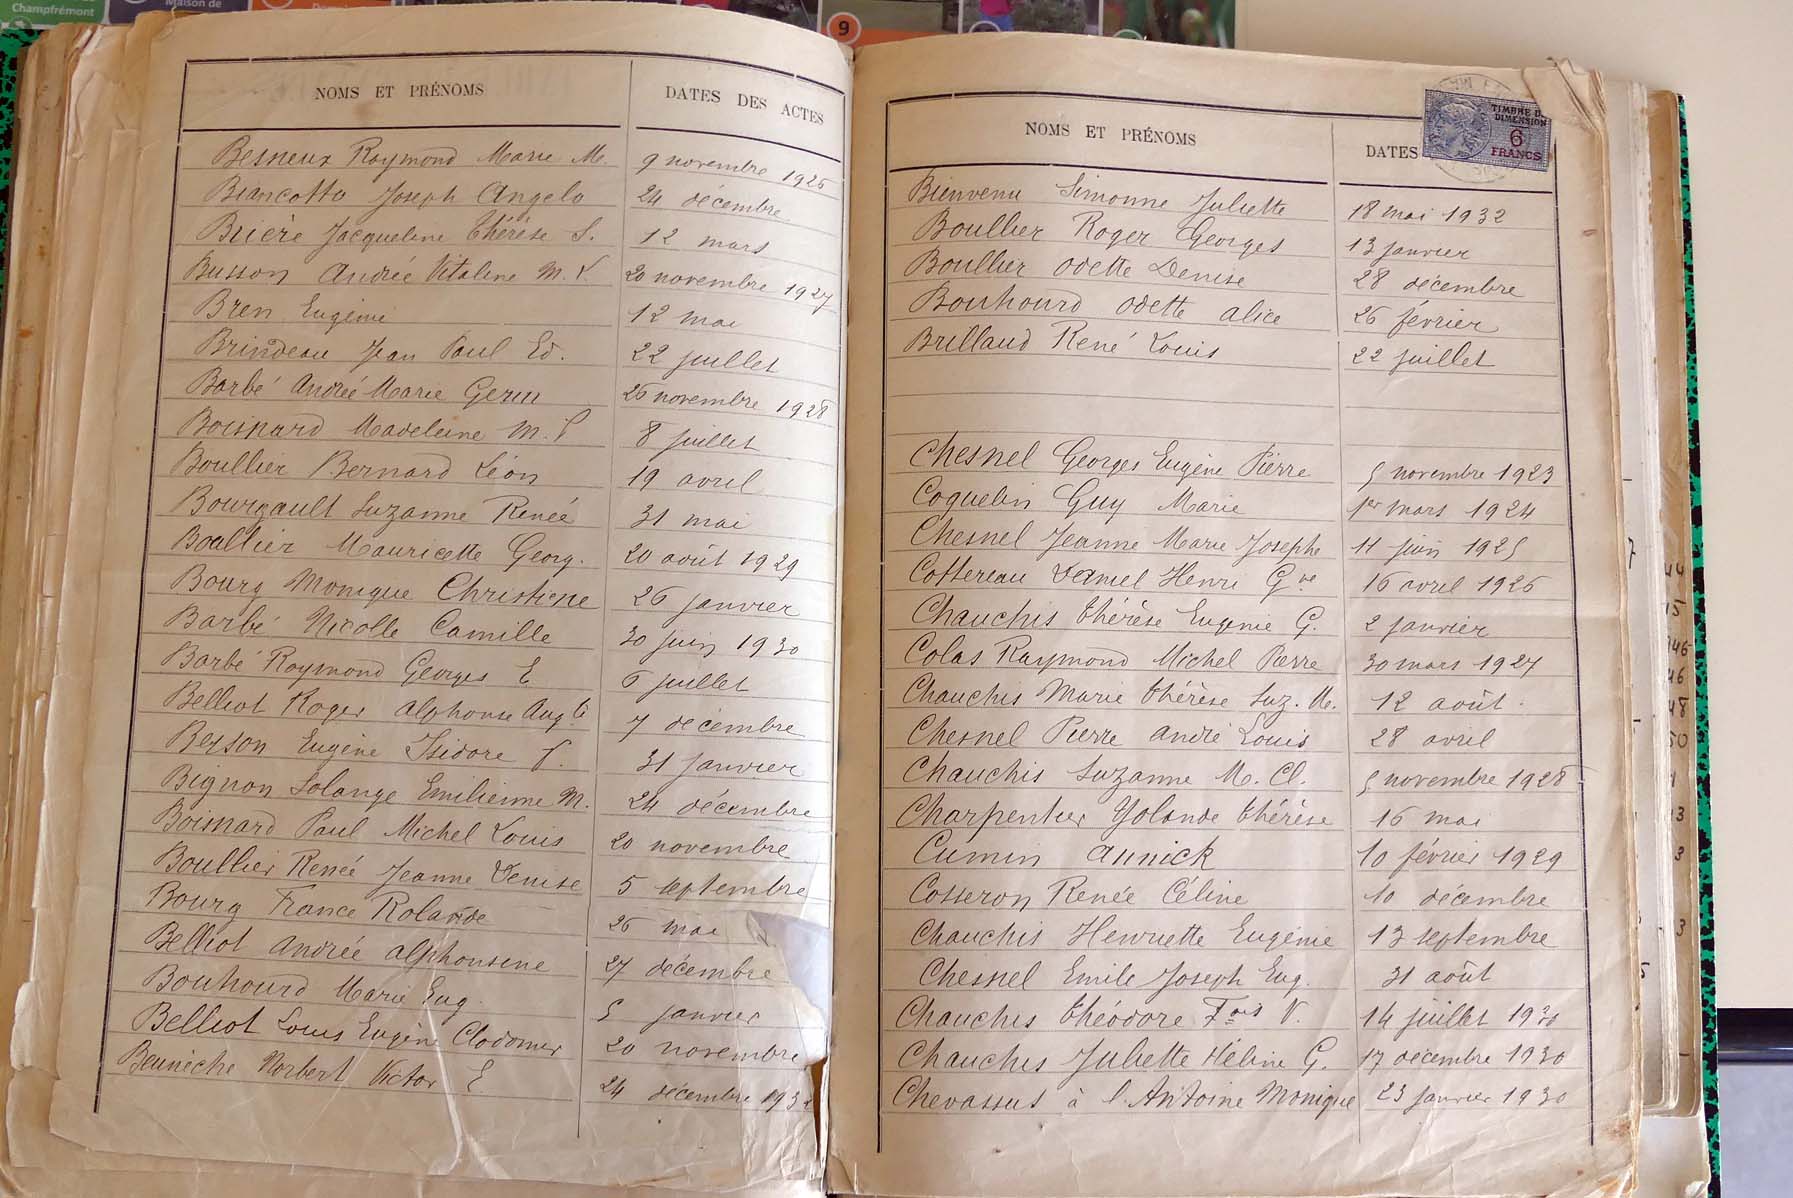 Champfrémont
Maison de
9
NOMS ET PRÉNOMS DATES DES ACTES
Besneux Raymond Marie M. 9 novembre 1926
Biancotto Joseph Angelo 24 décembre
Brière Jacqueline Thérèse S. 12 mars
Busson Andrée Vitaline M. L. 20 novembre 1927
Bren Eugénie 12 mai
Brindeau Jean Paul Ed. 22 juillet
Barbé André Marie 26 novembre 1928
Boisnard Madeleine M. 8 juillet
Boullier Bernard Léon 19 avril
Bourgault Suzanne Renée 31 mai
Boullier Mauricette Georg. 20 août 1929
Bourg Monique Christiene 26 janvier
Barbé Nicolle Camille 30 juin 1930
Barbé Raymond Georges E 6 juillet
Belliot Roger Alphonse Aug te 7 décembre
Beyson Eugène Isidore 31 janvier
Bignon Solange Emilienne M. 24 décembre
Boisnard Paul Michel Louis 20 novembre
Boullier Renée Jeanne Denise 5 septembre
Bourg France Rolande 26 mai
Belliot Andrée Alphonsine 27 décembre
Bouhourd Marie Eug. 5 janvier
Belliot Louis Eugène Clodomir 20 novembre
Beunèche Norbert Victor E. 24 décembre
NOMS ET PRÉNOMS DATES
TIMBRE DE
DIMENSION
6
FRANCS
Bienvenu Simonne Juliette 18 mai 1932
Boullier Roger Georges 13 janvier
Boullier Odette Denise 28 décembre
Bouhourd Odette Alice 26 février
Brillaud René Louis 22 juillet
Chesnel Georges Eugène Pierre 5 novembre 1923
Coquelin Guy Marie 1er mars 1924
Chesnel Jeanne Marie Josephe 11 juin 1925
Cottereau Daniel Henri Gve 16 avril 1926
Chauchis Thérèse Eugénie G. 2 janvier
Colas Raymond Michel Pierre 30 mars 1927
Chauchis Marie Thérèse Suz. M. 12 août
Chesnel Pierre André Louis 28 avril
Chauchis Suzanne M. Cl. 5 novembre 1928
Charpentier Yolande Thérèse 16 mai
Cumin Annick 10 février 1929
Cosseron Renée Céline 10 décembre
Chauchis Henriette Eugénie 13 septembre
Chesnel Emile Joseph Eug. 31 août
Chauchis Théodore Fois V. 14 juillet 1930
Chauchis Juliette Hélène G. 17 décembre 1930
Chevassus à l'Antoine Monique 23 janvier 1930